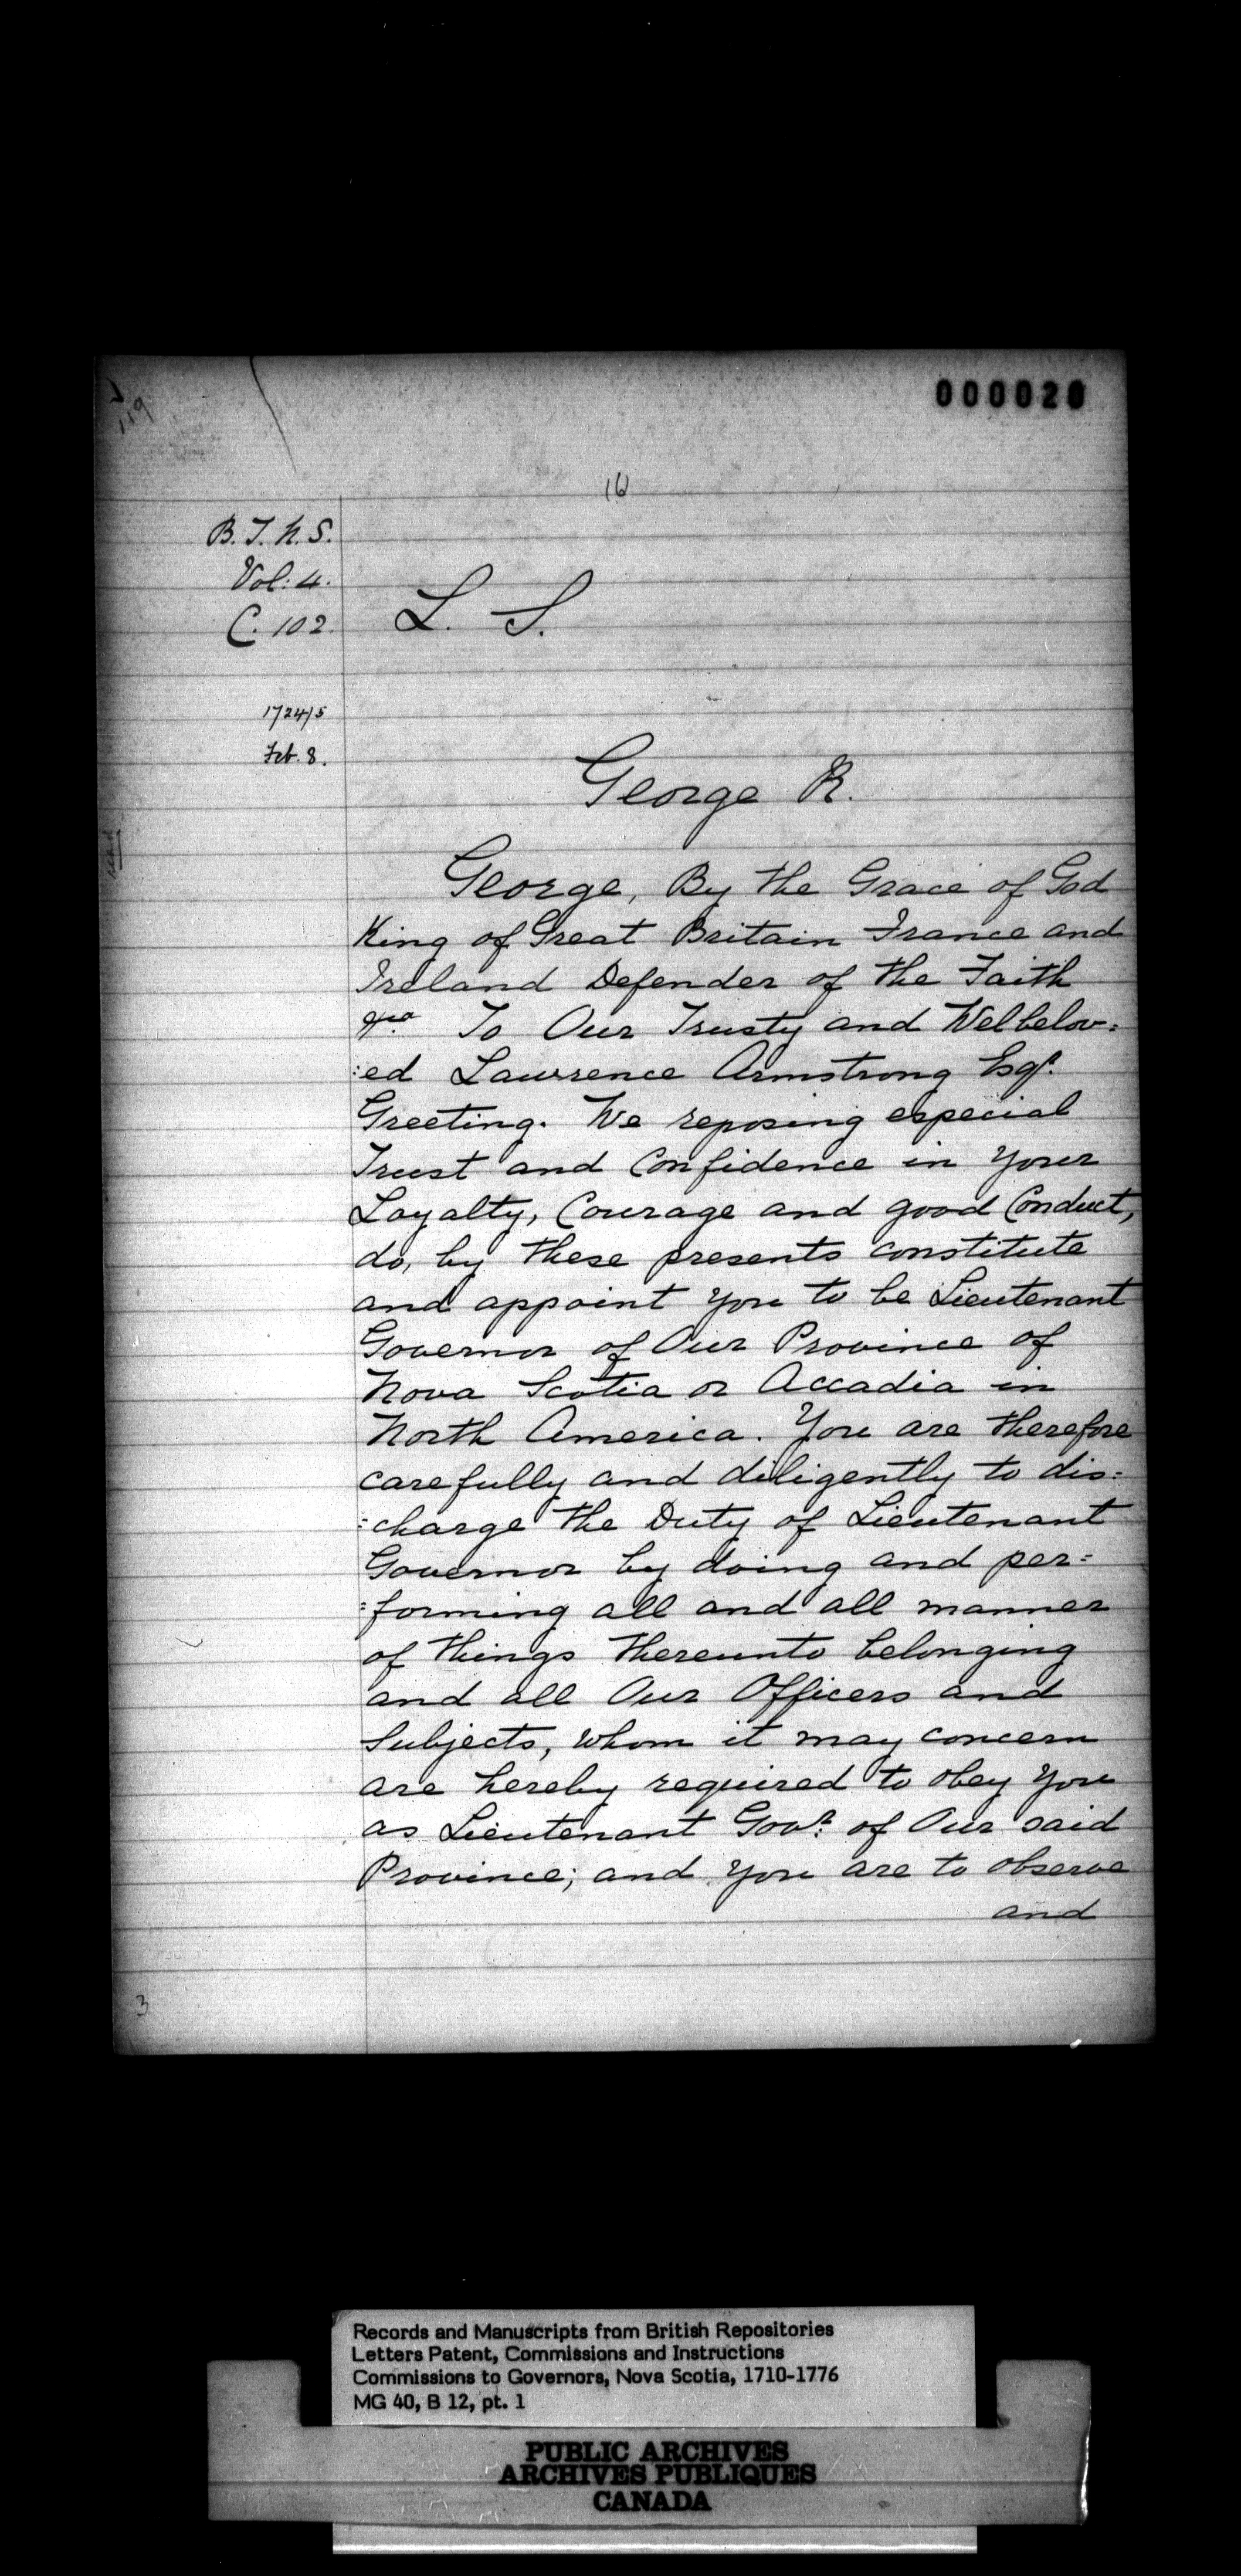 000020
16
B. T. N. S.
Vol: 4.
C. 102.
L. S.
1724/5
Feb. 8.
George R.
George, By the Grace of God
King of Great Britain France and
Ireland Defender of the Faith
&ca. To Our Trusty and Welbelov=
:ed Lawrence Armstrong Esqr.
Greeting. We reposing especial
Trust and Confidence in your
Loyalty, Courage and good Conduct,
do, by these presents constitute
and appoint you to be Lieutenant
Governor of Our Province of
Nova Scotia or Accadia in
North America. You are therefore
carefully and diligently to dis=
=charge the Duty of Lieutenant
Governor by doing and per=
=forming all and all manner
of things thereunto belonging
and all Our Officers and
Subjects, whom it may concern
are hereby required to obey you
as Lieutenant Govr. of Our said
Province; and you are to observe
and
3
Records and Manuscripts from British Repositories
Letters Patent, Commissions and Instructions
Commissions to Governors, Nova Scotia, 1710-1776
MG 40, B 12, pt. 1
PUBLIC ARCHIVES
ARCHIVES PUBLIQUES
CANADA